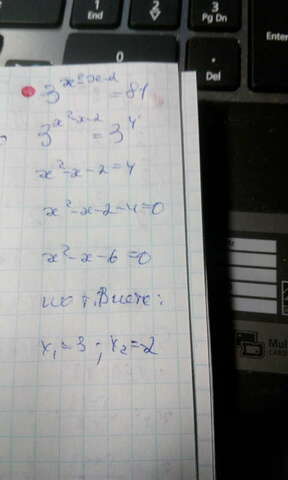 1
End
2
3
Pg Dn
Enter
0
.
Del
3^(x²-x-2) = 81
3^(x²-x-2) = 3^4
x²-x-2=4
x²-x-2-4=0
x²-x-6=0
по т. Виета:
x₁=3; x₂=-2
Mul
CARD